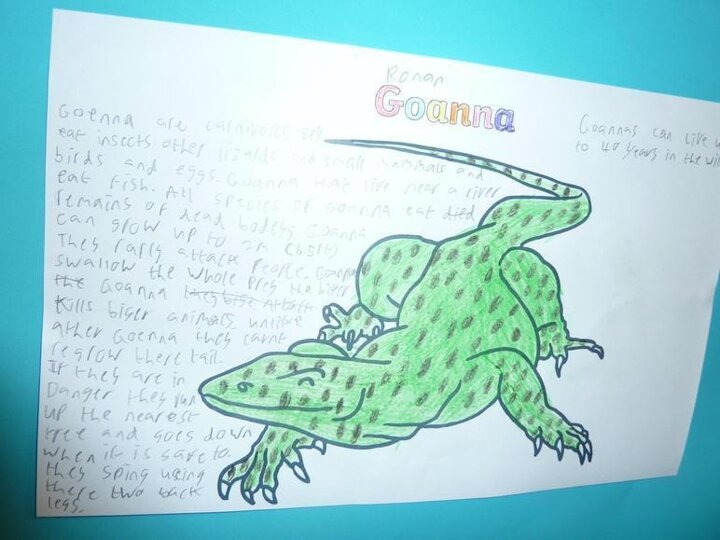 Ronan
Goanna
Goenna are carnivores they
eat insects other lizalds and small mammals and
birds and eggs. Goanna that live near a river
eat fish. All species of Goanna eat died
remains of dead bodeys. Goanna
can grow up to 2m (6.5ft)
They rarly attack People. Goanna
swallow the whole Prey the biger
the Goanna they bise Attack
Kills biger animals. unlike
ather Goenna they carnt
regrow there tail.
If they are in
Danger they run
up the nearest
tree and goes down
when it is save to.
they sping using
there two back
legs.
Goannas can live u
to 40 years in the wil